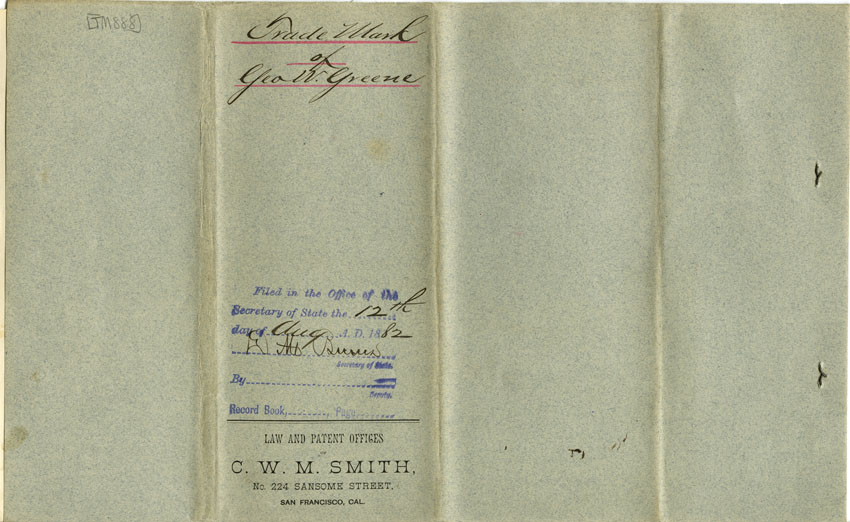 [TM888]
Trade Mark
of
Geo W. Greene
Filed in the Office of the
Secretary of State the 12th
day of Aug A. D. 1882
D M Burns
Secretary of State.
By
Deputy.
Record Book, ........, Page ........
LAW AND PATENT OFFICES
C. W. M. SMITH,
No. 224 SANSOME STREET,
SAN FRANCISCO, CAL.